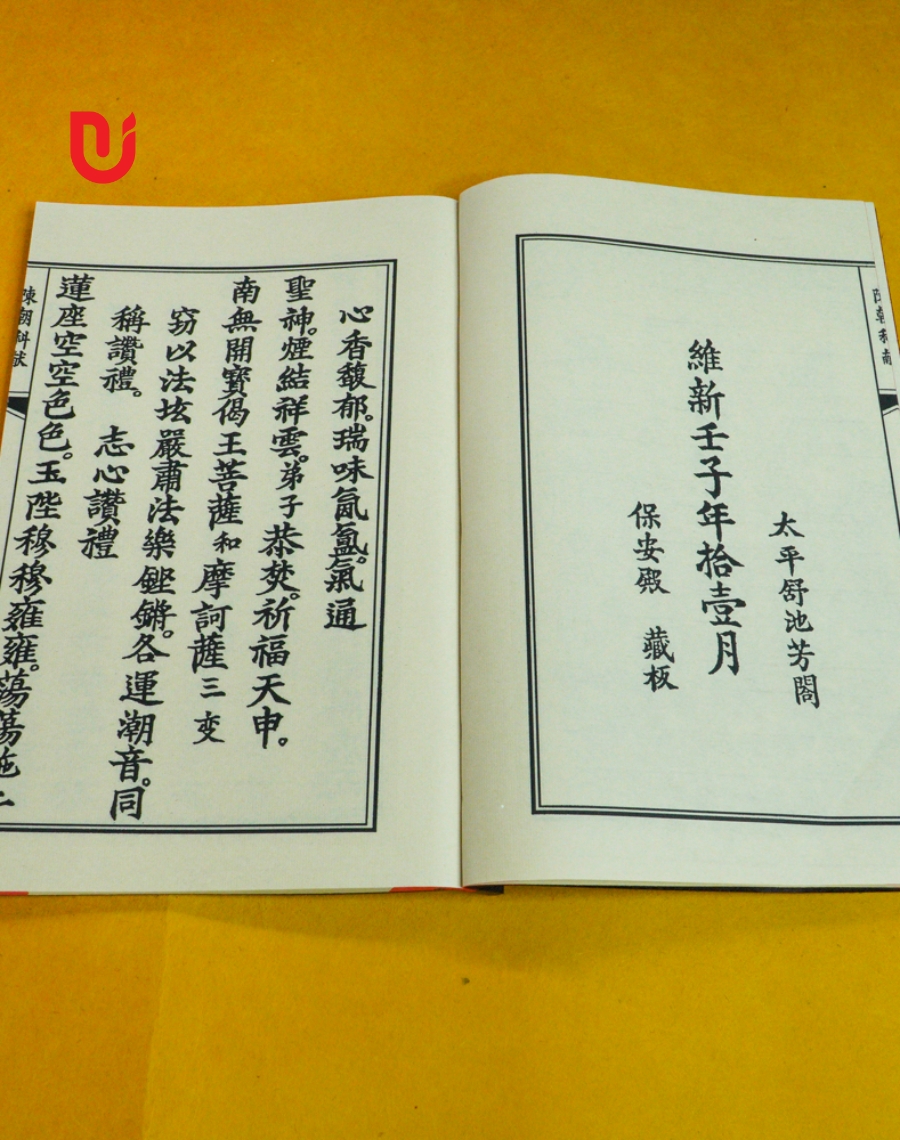 太平舒池芳閣
維新壬子年拾壹月
保安殿　藏板
陳朝科
心香馥郁。瑞味氤氳。氣通
聖神。煙結祥雲。弟子恭焚。祈福天申。
南無開寶偈王菩薩和摩訶薩三变
窈以法垓嚴肅法樂鏗鏘。各運潮音。同
稱讚禮。　志心讚禮
蓮座空空色色。玉陛穆穆雍雍。蕩蕩
陳朝科